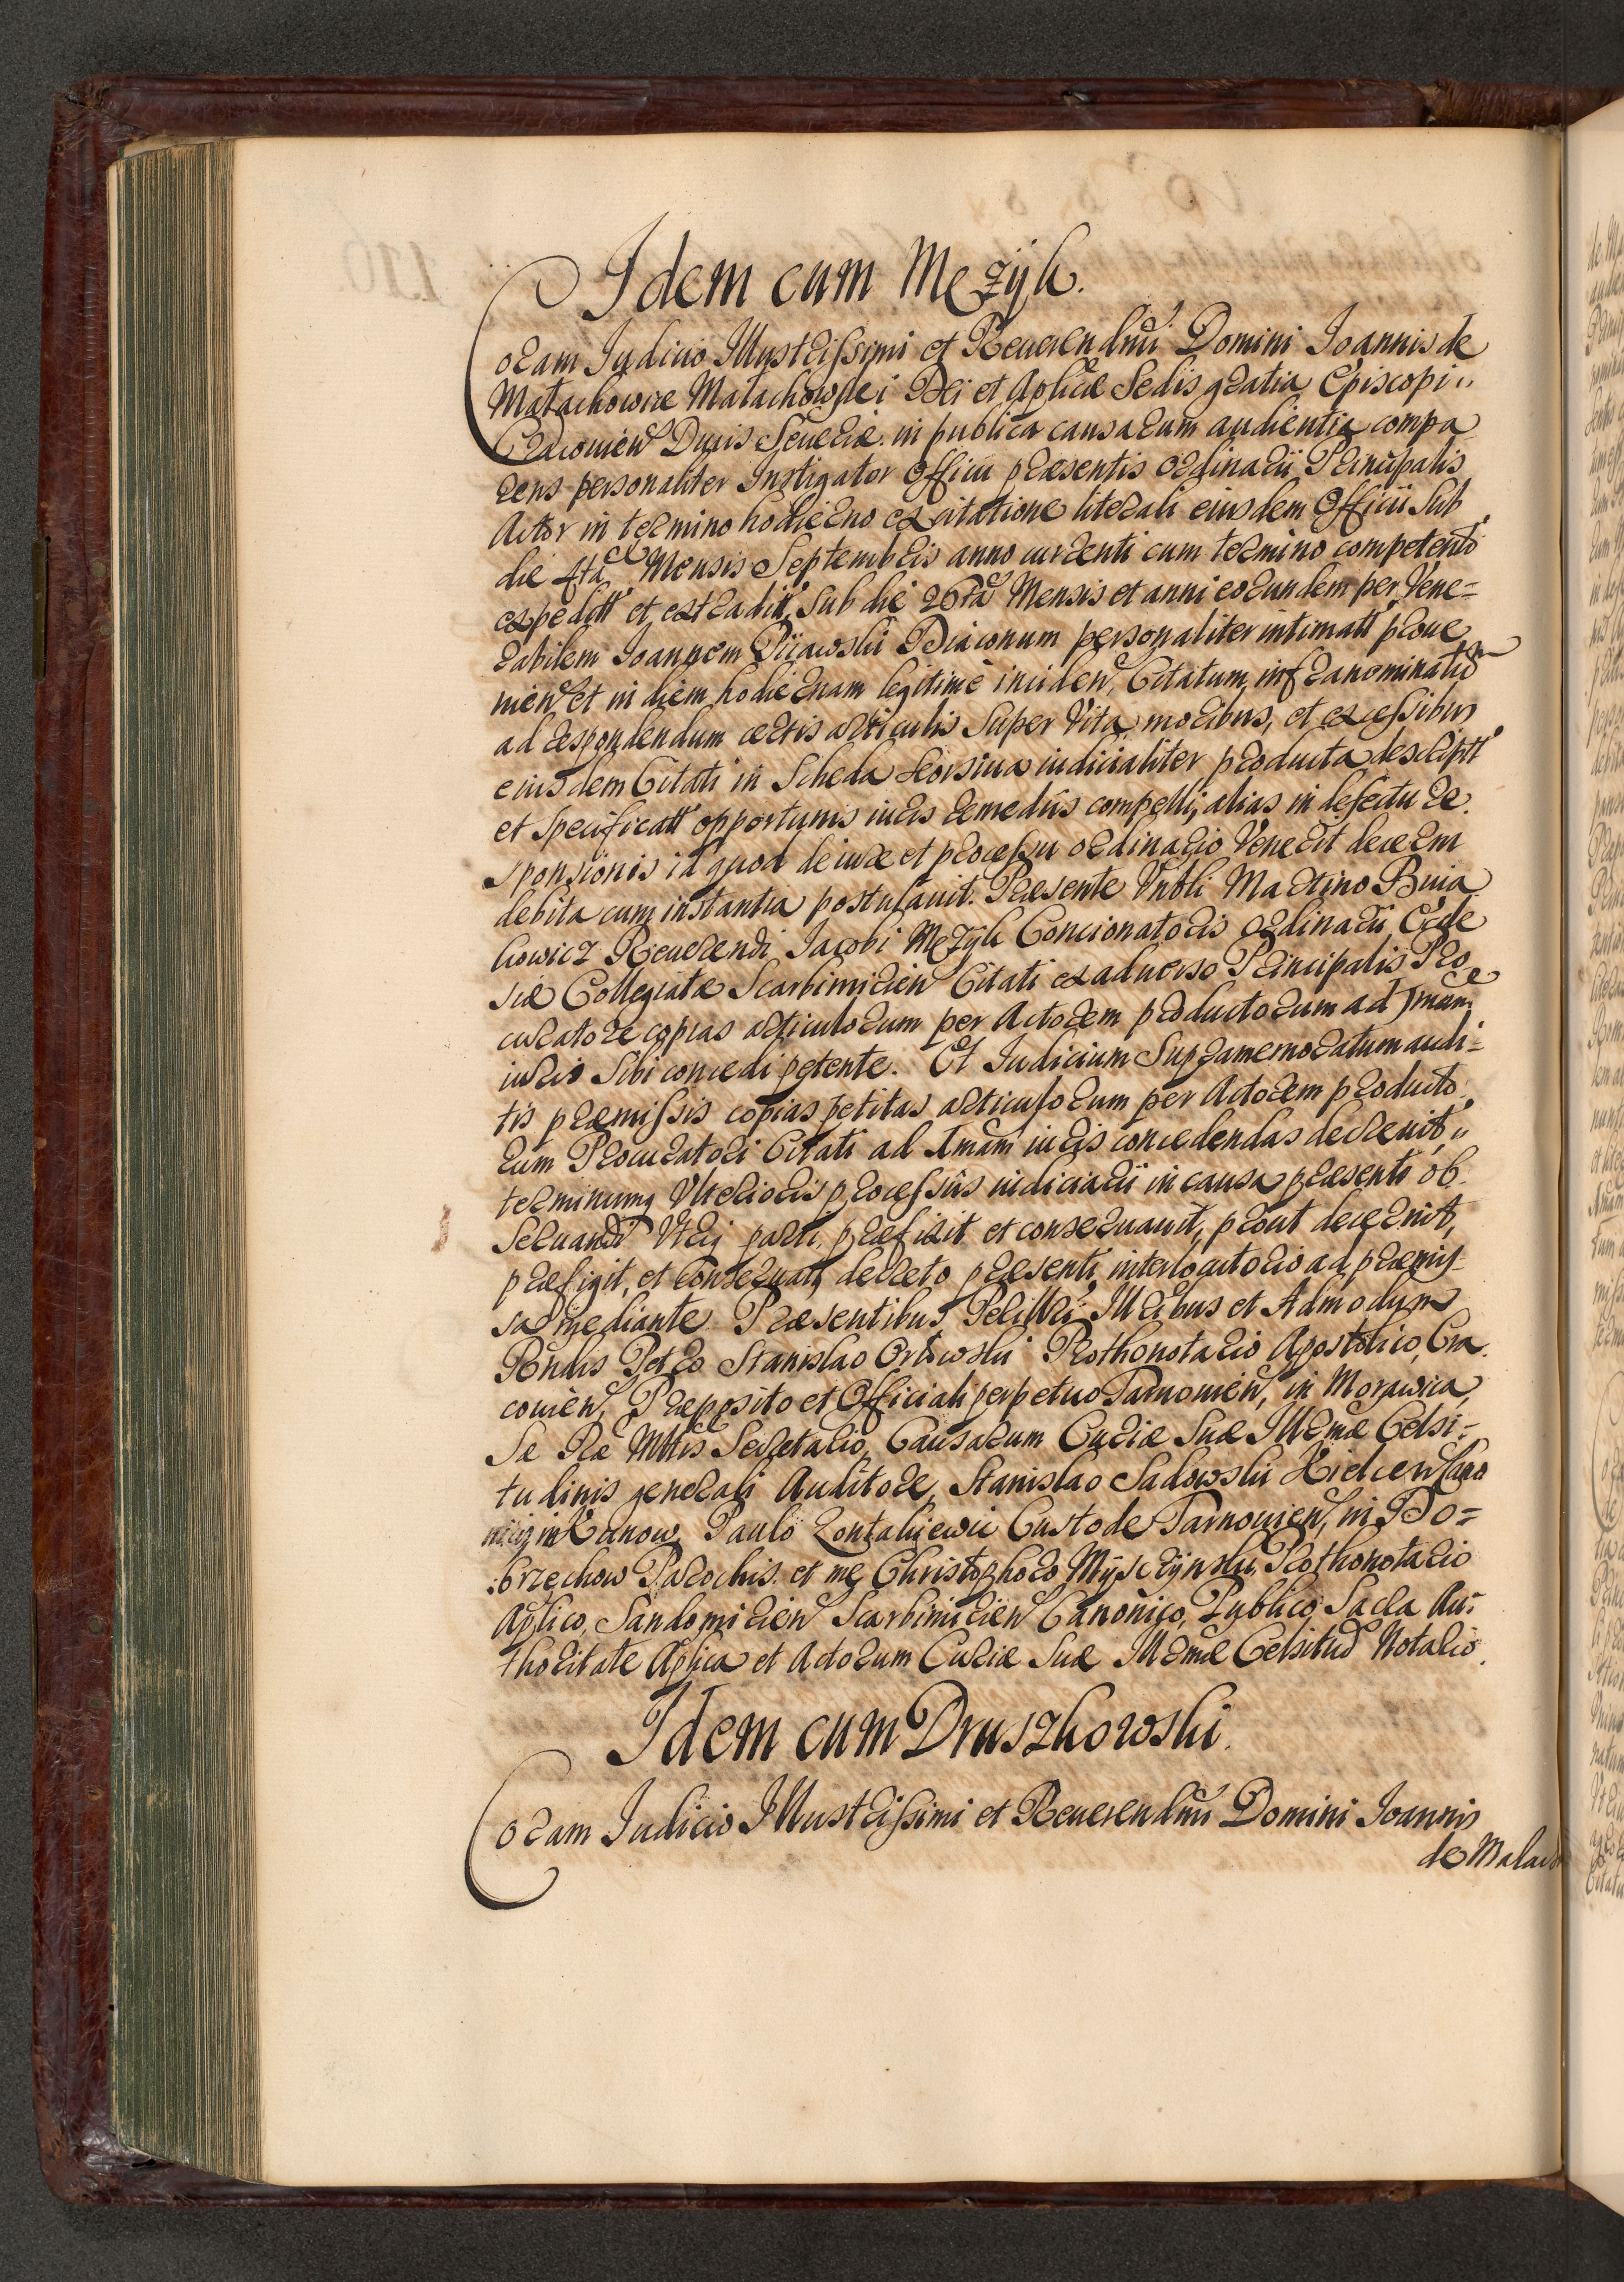 Idem cum Mezÿk.
Coram Iudicio Illustrissimi et Reuerendmi Domini Ioannis de
Małachowice Małachowski Dei et Aplicæ Sedis gratia Episcopi
Cracouien Ducis Seueriæ in publica causarum audientia compa
rens personaliter Instigator Officii præsentis ordinarii Principalis
Actor in termino hodierno ex citatione literali eiusdem Officii Sub
die 4ta Mensis Septembris anno currenti cum termino competenti
expeditt et extradit, Sub die 26ta Mensis et anni eorundem per Vene=
rabilem Ioannem Diaconum personaliter intimatt proue
nien et in diem hodiernam legitimè inciden, Citatum infranominatū
ad respondendum certis articulis Super Vita moribus, et excessibus
eiusdem Citati in Scheda Seorsiua iudicialiter producta descriptt
et Specificatt opportunis iuris remediis compelli, alias in defectu re
sponsionis id quod de iure et processu ordinario Venerit decerni
debita cum instantia postulauit. Præsente Vnbli Martino Buia
kowicz Reuerendi Iacobi Mezÿk Concionatoris ordinarii Eccle
siæ Collegiatæ Scarbimirien Citati ex aduerso Principalis Pro
curatore copias articulorum per Actorem productorum ad Imam
iuris Sibi concedi petente. Et Iudicium Supramemoratum audi=
tis præmissis copias petitas articulorum per Actorem producto
rum Procuratori Citati ad Imam iuris concedendas decreuit,
terminumq Vlterioris processus iudiciarii in causa præsenti ob
Seruandi Vtriq parti præfixit et conseruauit, prout decernit,
præfigit, et conseruat, decreto præsenti interlocutorio ad præmis
sa mediante. Præsentibus Perillri Illribus et Admodum
Rndis Petro Stanislao Orłowski Prothonotario Apostolico, Cra
couien, Præposito et Officiali perpetuo Tarnouien, in Morawica,
Sæ Ræ Mttis Secretario, Causarum Curiæ Suæ Illrmæ Celsi=
tudinis generali Auditore, Stanislao Sadowski Kielcen Cano
nico in Ranow, Paulo Custode Tarnouien, in Do=
brzechow Parochis. et me Christophoro Prothonotario
Aplico, Sandomirien Scarbimirien Canonico, Publico Sacra Au=
thoritate Aplica et Actorum Curiæ Suæ Illrmæ Celsitud Notario.
Idem cum Druszkowski.
Coram Iudicio Illustrissimi et Reuerendmi Domini Ioannis
de Malach